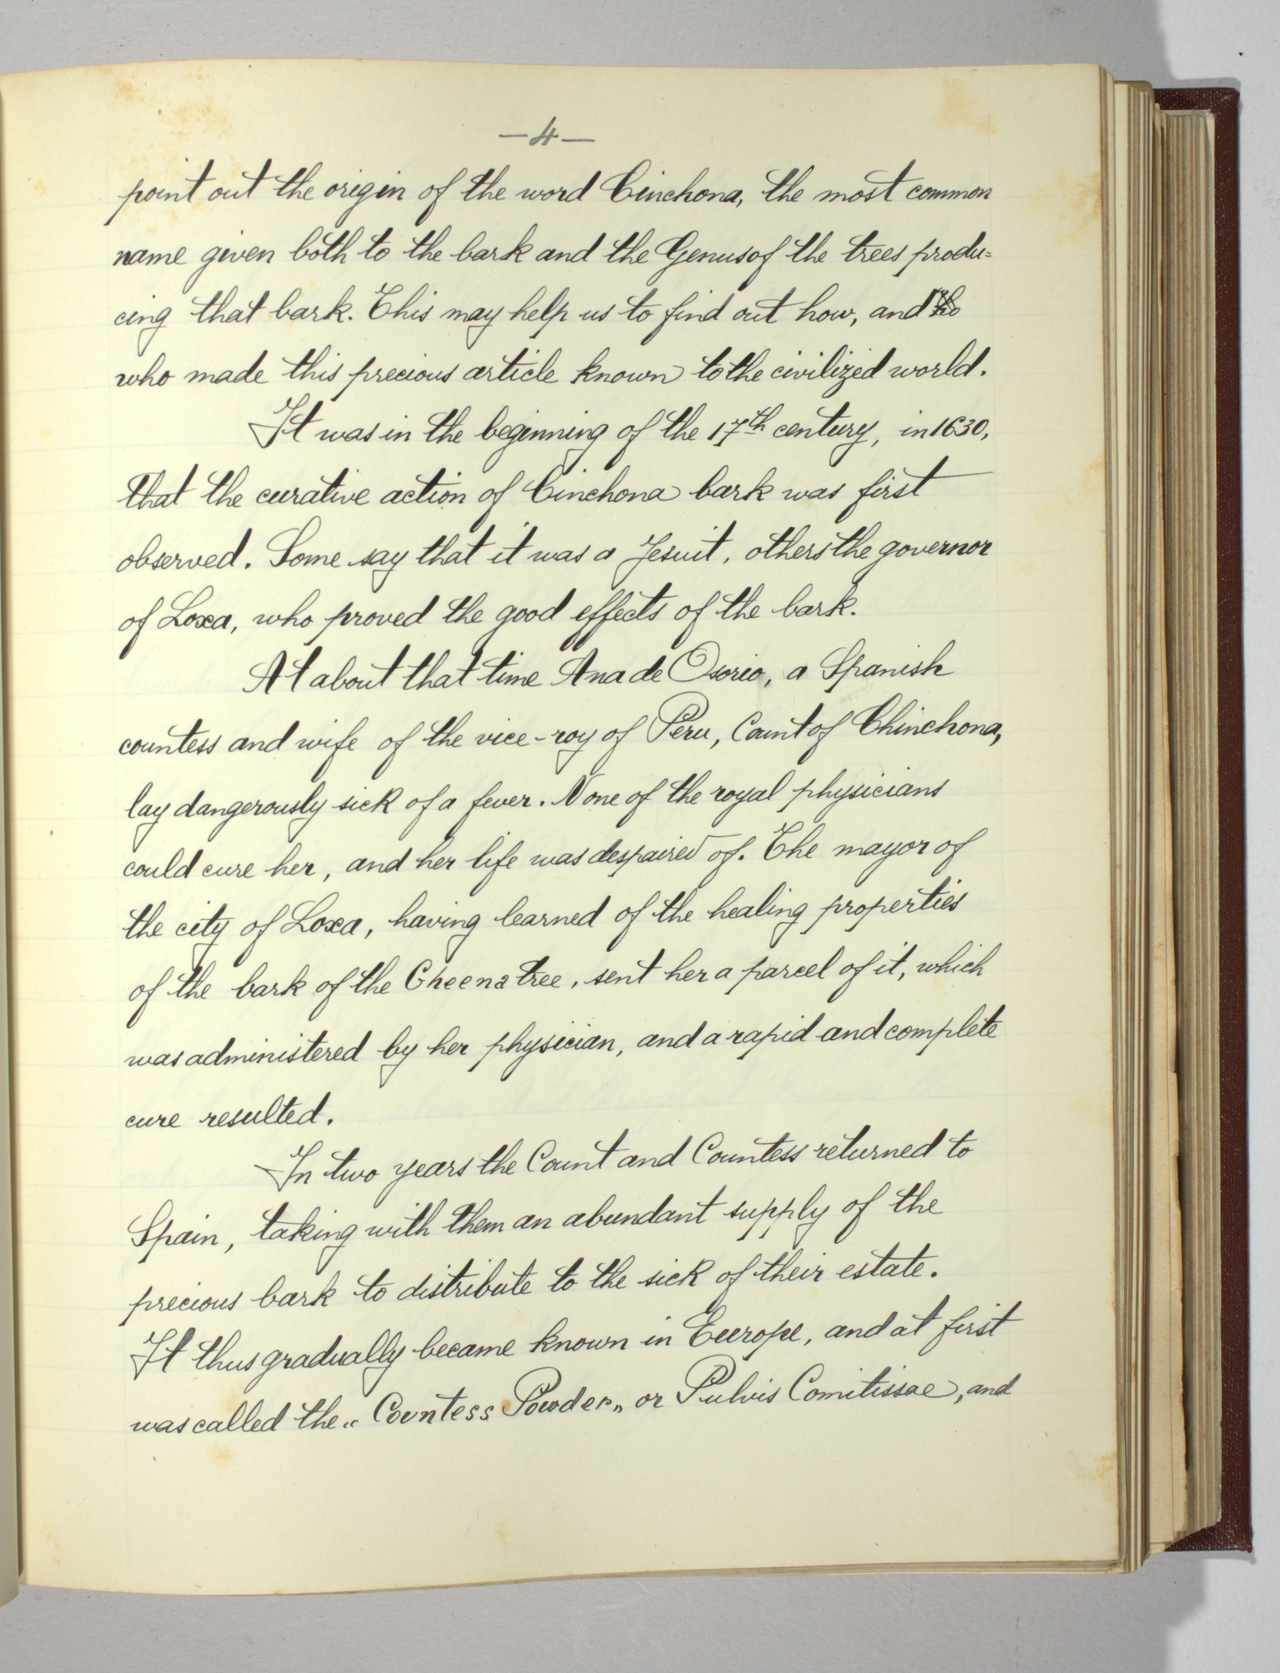 —4—
point out the origin of the word Cinchona, the most common
name given both to the bark and the Genus of the trees produ=
cing that bark. This may help us to find out how, and
who made this precious article known to the civilized world.
It was in the beginning of the 17th century, in 1630,
that the curative action of Cinchona bark was first
observed. Some say that it was a Jesuit, others the governor
of Loxa, who proved the good effects of the bark.
At about that time Ana de Osorio, a Spanish
countess and wife of the vice-roy of Peru, Count of Chinchona,
lay dangerously sick of a fever. None of the royal physicians
could cure her, and her life was despaired of. The mayor of
the city of Loxa, having learned of the healing properties
of the bark of the Cheena tree, sent her a parcel of it, which
was administered by her physician, and a rapid and complete
cure resulted.
In two years the Count and Countess returned to
Spain, taking with them an abundant supply of the
precious bark to distribute to the sick of their estate.
It thus gradually became known in Europe, and at first
was called the „Countess Powder„ or Pulvis Comitissae, and